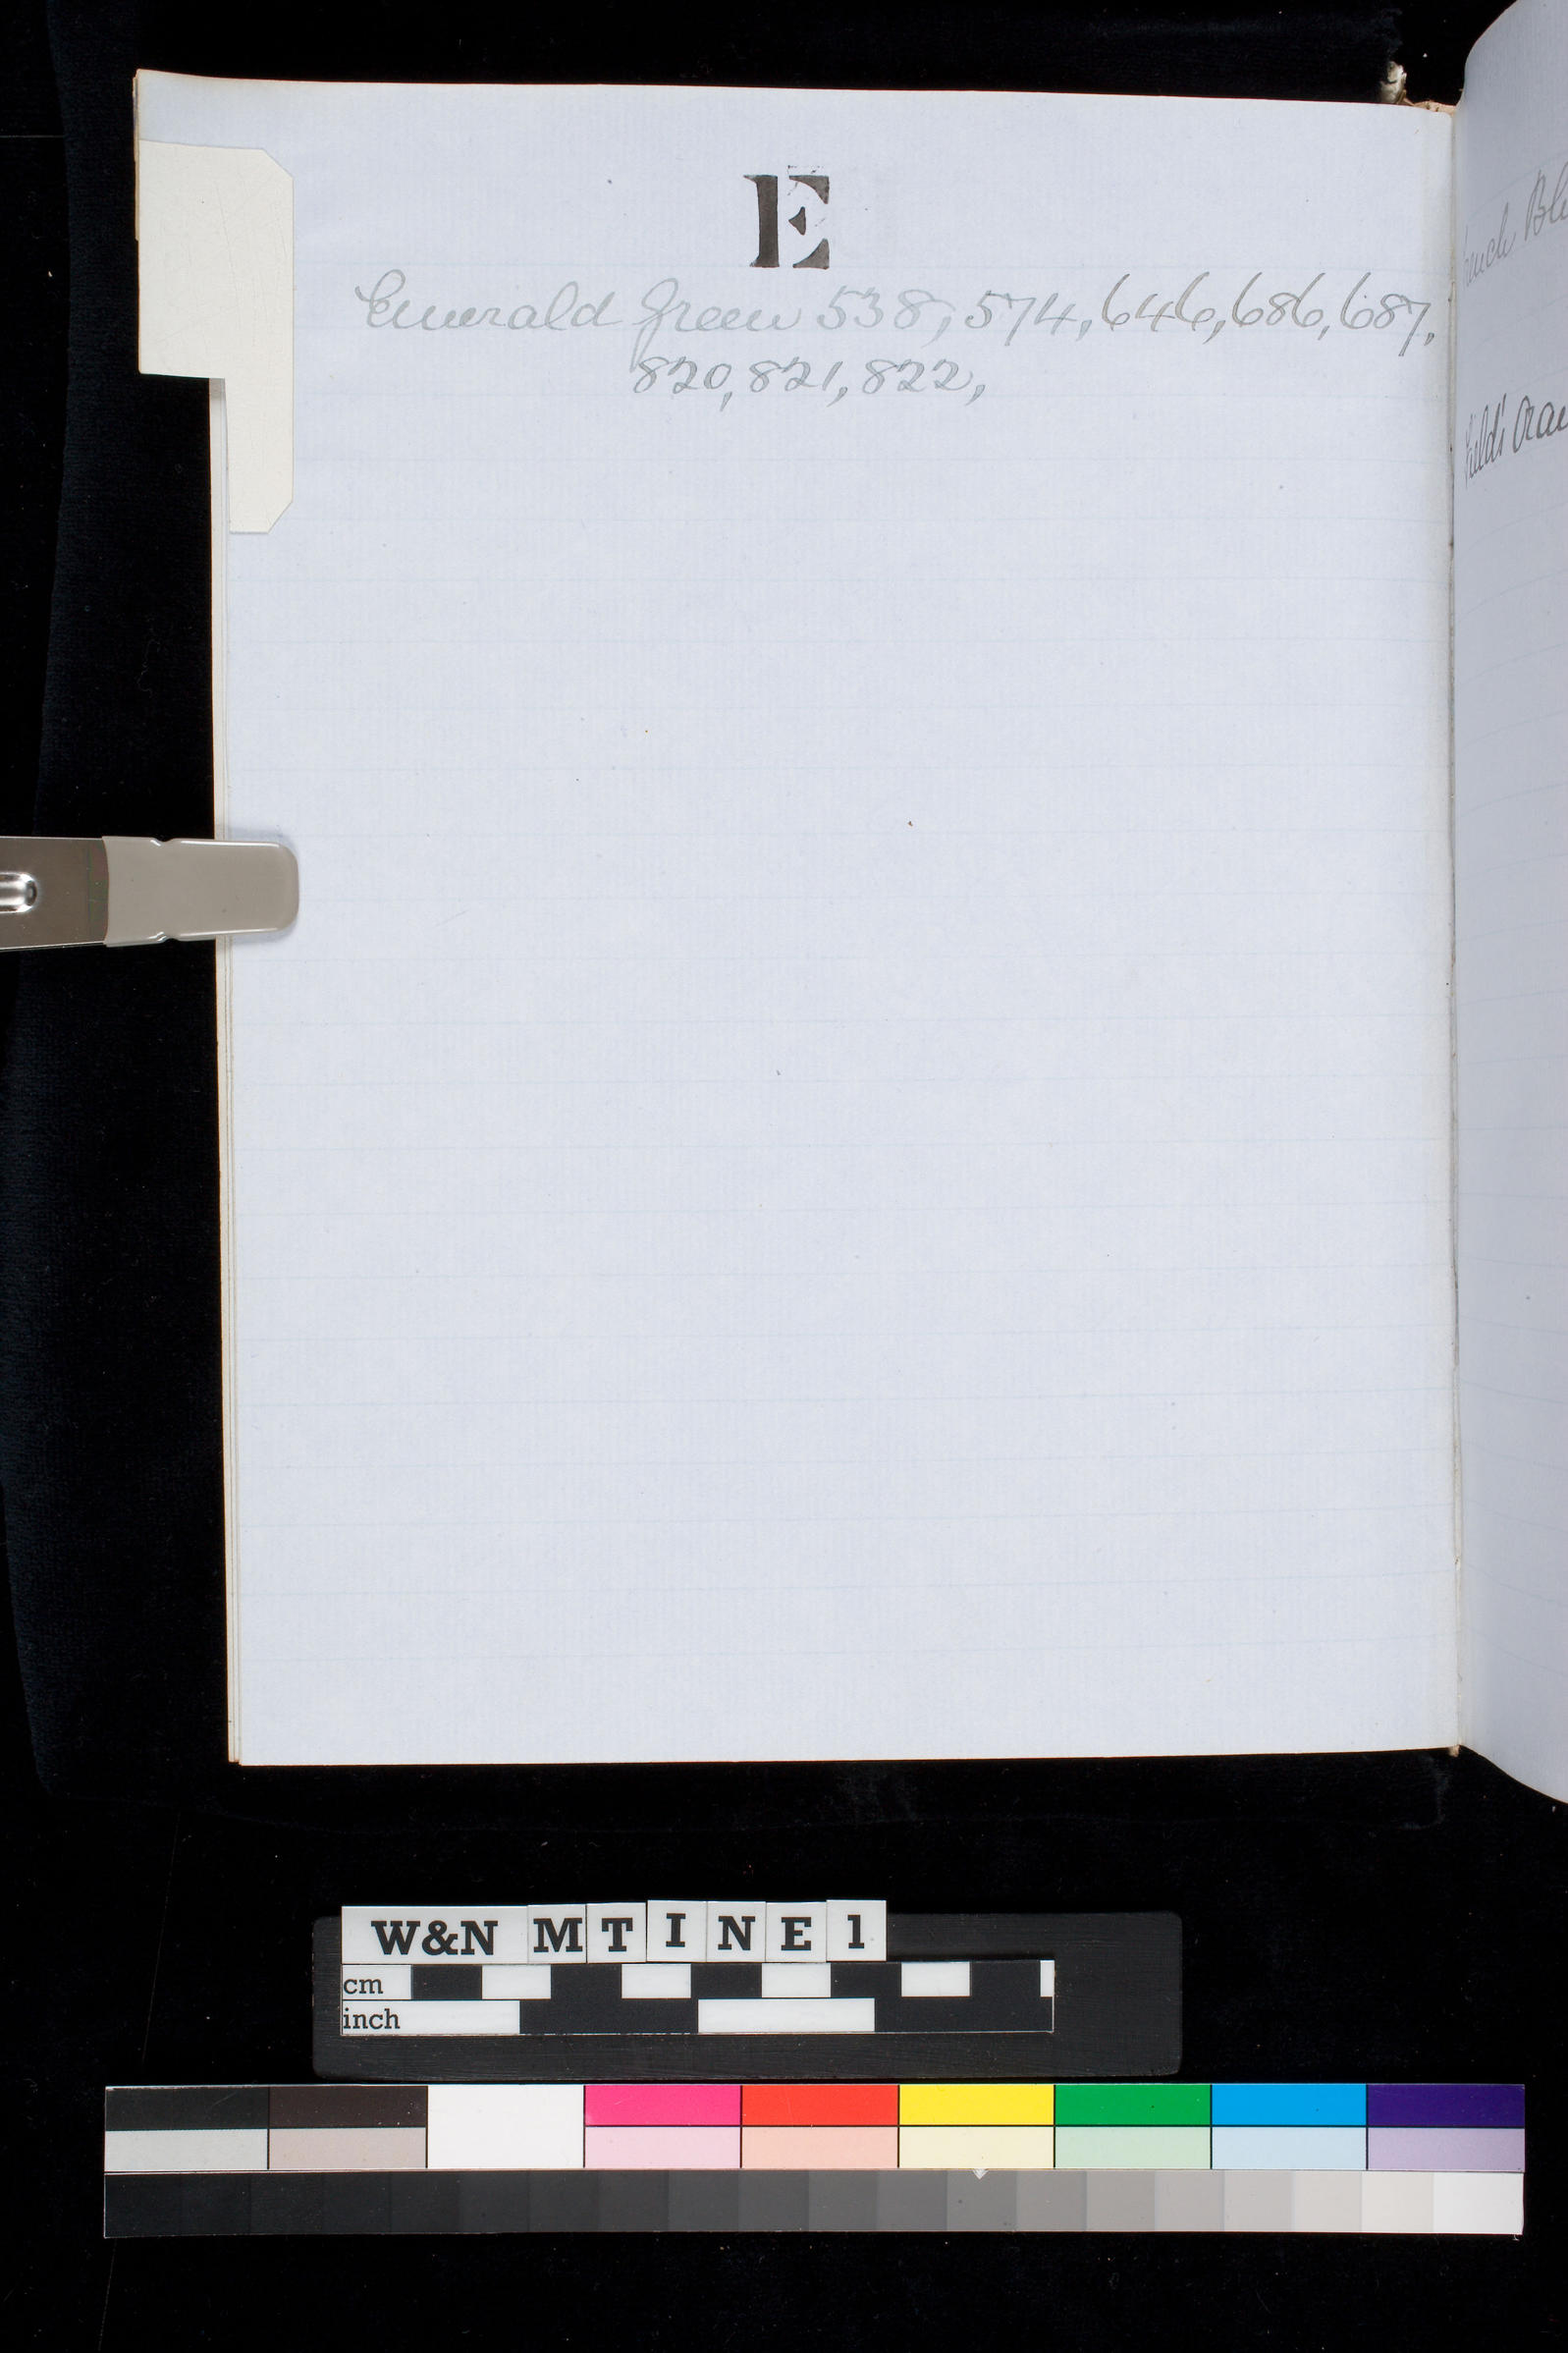 E
Emerald Green 538, 574, 646, 686, 687,
820, 821, 822,
Field's Oran
W&N MTINE1
cm
inch